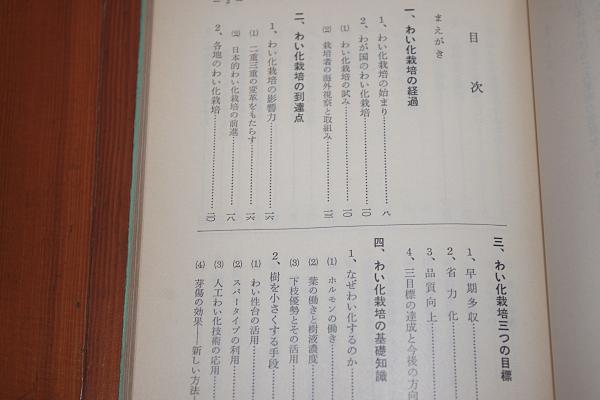 目次
まえがき
一、わい化栽培の経過
1、わい化栽培の始まり……八
2、わが国のわい化栽培……一〇
(1) わい化栽培の試み……一〇
(2) 栽培者の海外視察と取組み……一三
二、わい化栽培の到達点
1、わい化栽培の影響力……一六
(1) 二重三重の変革をもたらす……一六
(2) 日本的わい化栽培の前進……一八
2、各地のわい化栽培……二〇
三、わい化栽培三つの目標
1、早期多収
2、省力化
3、品質向上
4、三目標の達成と今後の方向
四、わい化栽培の基礎知識
1、なぜわい化するのか
(1) ホルモンの働き
(2) 葉の働きと樹液濃度
(3) 下枝優勢とその活用
2、樹を小さくする手段
(1) わい性台の活用
(2) スパータイプの利用
(3) 人工わい化技術の応用
(4) 芽傷の効果――新しい方法